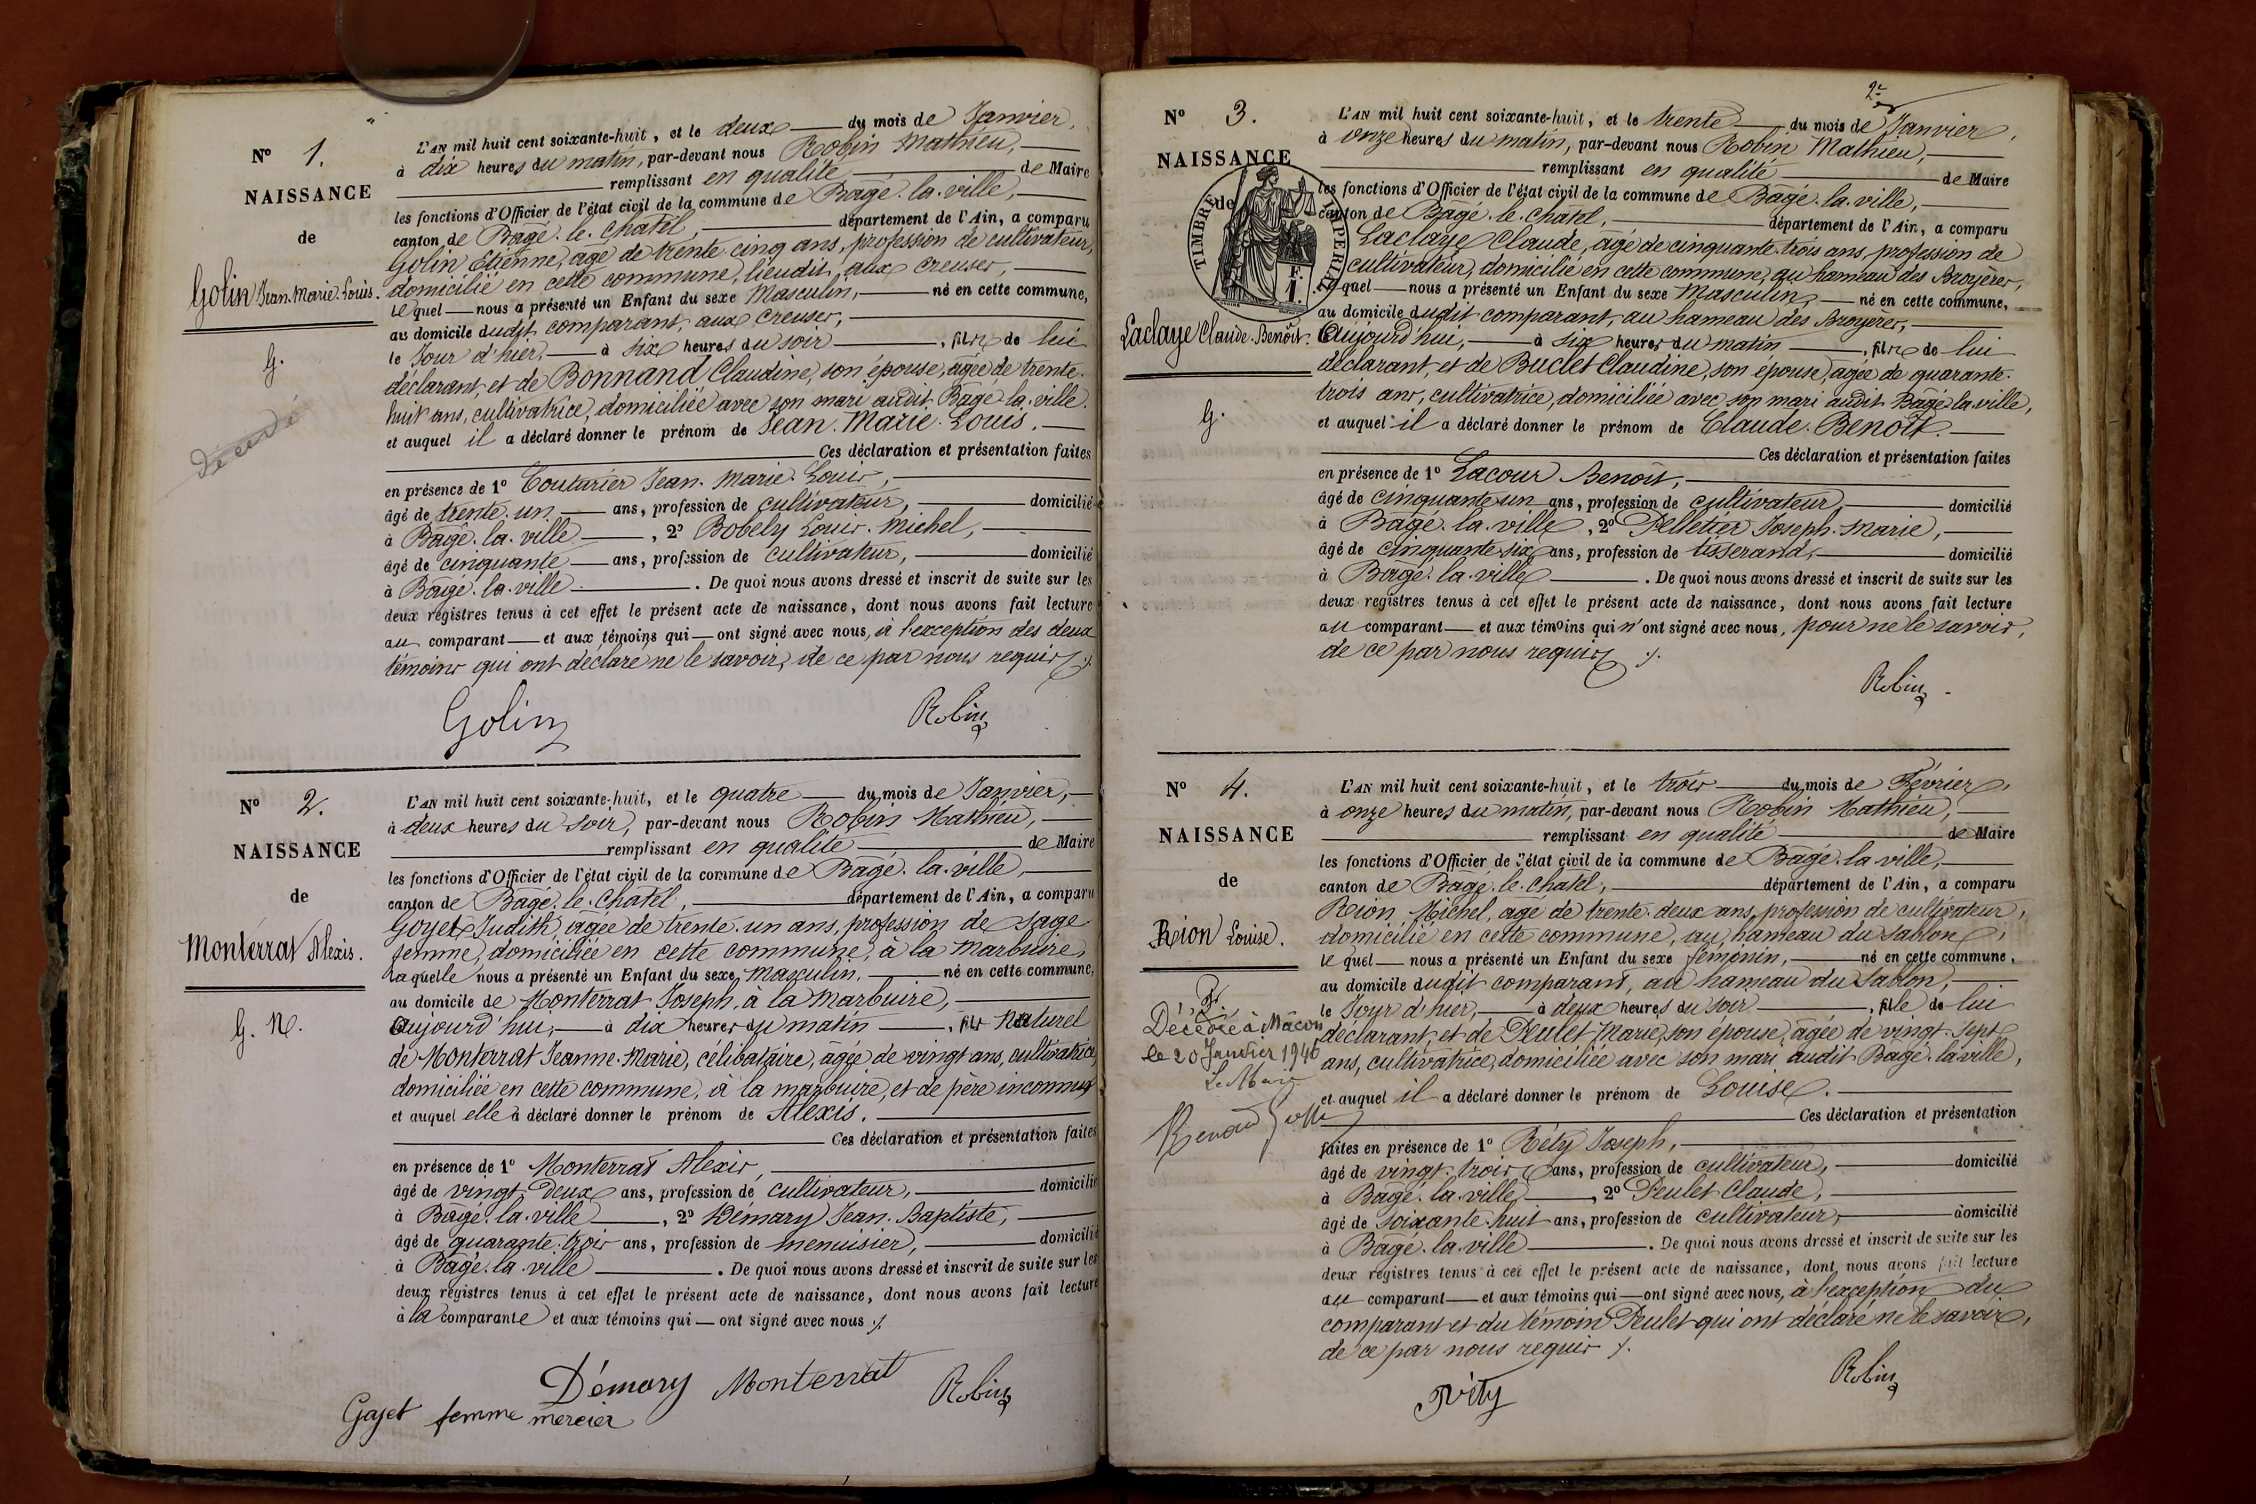 Nº 1.
NAISSANCE
de
Golin Jean-Marie-Louis.
G.
Décédé
L'AN mil huit cent soixante-huit, et le deux du mois de Janvier,
à dix heures du matin, par-devant nous Robin Mathieu,
remplissant en qualité de Maire
les fonctions d'Officier de l'état civil de la commune de Bagé-la-ville,
canton de Bagé-le-Chatel, département de l'Ain, a comparu
Golin Etienne, agé de trente-cinq ans, profession de cultivateur,
domicilié en cette commune, lieudit aux creuser,
lequel nous a présenté un Enfant du sexe Masculin, né en cette commune,
au domicile dudit comparant, aux creuser,
le Jour d'hier, à six heures du soir, fils de lui
déclarant, et de Bonnand Claudine, son épouse, âgée de trente-
huit ans, cultivatrice, domiciliée avec son mari audit Bagé-la-ville.
et auquel il a déclaré donner le prénom de Jean-Marie-Louis.
Ces déclaration et présentation faites
en présence de 1º Couturier Jean-Marie-Louis,
âgé de trente-un ans, profession de cultivateur, domicilié
à Bagé-la-ville, 2º Bobely Louis-Michel,
âgé de cinquante ans, profession de cultivateur, domicilié
à Bagé-la-ville. De quoi nous avons dressé et inscrit de suite sur les
deux registres tenus à cet effet le présent acte de naissance, dont nous avons fait lecture
au comparant et aux témoins qui ont signé avec nous, à l'exception des deux
témoins qui ont déclaré ne le savoir, de ce par nous requis ./.
Golin Robin
Nº 2.
NAISSANCE
de
Monterrat Alexis.
G. N.
L'AN mil huit cent soixante-huit, et le quatre du mois de Janvier,
à deux heures du soir, par-devant nous Robin Mathieu,
remplissant en qualité de Maire
les fonctions d'Officier de l'état civil de la commune de Bagé-la-ville,
canton de Bagé-le-Chatel, département de l'Ain, a comparu
Goyet Judith, âgée de trente-un ans, profession de sage
femme, domiciliée en cette commune, à la marbuire,
Laquelle nous a présenté un Enfant du sexe masculin, né en cette commune,
au domicile de Monterrat Joseph, à la Marbuire,
aujourd'hui, à dix heures du matin, fils naturel
de Monterrat Jeanne-Marie, célibataire, âgée de vingt ans, cultivatrice,
domiciliée en cette commune, à la marbuire, et de père inconnu
et auquel elle a déclaré donner le prénom de Alexis.
Ces déclaration et présentation faites
en présence de 1º Monterrat Alexis,
âgé de vingt-deux ans, profession de cultivateur, domicilié
à Bagé-la-ville, 2º Démary Jean-Baptiste,
âgé de quarante-trois ans, profession de menuisier, domicilié
à Bagé-la-ville. De quoi nous avons dressé et inscrit de suite sur les
deux registres tenus à cet effet le présent acte de naissance, dont nous avons fait lecture
à la comparante et aux témoins qui ont signé avec nous ./.
Démary Monterrat Robin
Gajet femme mercier
2e
Nº 3.
NAISSANCE
de
TIMBRE IMPERIAL
Laclaye Claude-Benoit.
G.
L'AN mil huit cent soixante-huit, et le trente du mois de Janvier,
à onze heures du matin, par-devant nous Robin Mathieu,
remplissant en qualité de Maire
les fonctions d'Officier de l'état civil de la commune de Bagé-la-ville,
canton de Bagé-le-Chatel, département de l'Ain, a comparu
Laclaye Claude, âgé de cinquante-trois ans, profession de
cultivateur, domicilié en cette commune, au hameau des Broyères,
lequel nous a présenté un Enfant du sexe Masculin, né en cette commune,
au domicile dudit comparant, au hameau des Broyères,
Aujourd'hui, à six heures du matin, fils de lui
déclarant, et de Buclet Claudine, son épouse, âgée de quarante-
trois ans, cultivatrice, domiciliée avec son mari audit Bagé-la-ville,
et auquel il a déclaré donner le prénom de Claude-Benoit.
Ces déclaration et présentation faites
en présence de 1º Lacour Benoit,
âgé de cinquante-un ans, profession de cultivateur, domicilié
à Bagé-la-ville, 2º Pelletier Joseph-Marie,
âgé de cinquante-six ans, profession de tisserand, domicilié
à Bagé-la-ville. De quoi nous avons dressé et inscrit de suite sur les
deux registres tenus à cet effet le présent acte de naissance, dont nous avons fait lecture
au comparant et aux témoins qui n'ont signé avec nous, pour ne le savoir,
de ce par nous requis ./.
Robin
Nº 4.
NAISSANCE
de
Réion Louise.
F.
Décédée à Mâcon
le 20 Janvier 1946
Le Maire
L'AN mil huit cent soixante-huit, et le trois du mois de Février,
à onze heures du matin, par-devant nous Robin Mathieu,
remplissant en qualité de Maire
les fonctions d'Officier de l'état civil de la commune de Bagé-la-ville,
canton de Bagé-le-Chatel, département de l'Ain, a comparu
Réion Michel, agé de trente-deux ans, profession de cultivateur,
domicilié en cette commune, au hameau du Sablon,
lequel nous a présenté un Enfant du sexe féminin, né en cette commune,
au domicile dudit comparant, au hameau du Sablon,
le Jour d'hier, à deux heures du soir, fille de lui
déclarant, et de Peulet Marie, son épouse, âgée de vingt-sept
ans, cultivatrice, domiciliée avec son mari audit Bagé-la-ville,
et auquel il a déclaré donner le prénom de Louise.
Ces déclaration et présentation
faites en présence de 1º Réty Joseph,
âgé de vingt-trois ans, profession de cultivateur, domicilié
à Bagé-la-ville, 2º Peulet Claude,
âgé de soixante-huit ans, profession de cultivateur, domicilié
à Bagé-la-ville. De quoi nous avons dressé et inscrit de suite sur les
deux registres tenus à cet effet le présent acte de naissance, dont nous avons fait lecture
au comparant et aux témoins qui ont signé avec nous, à l'exception du
comparant et du témoin Peulet qui ont déclaré ne le savoir,
de ce par nous requis ./.
Réty Robin